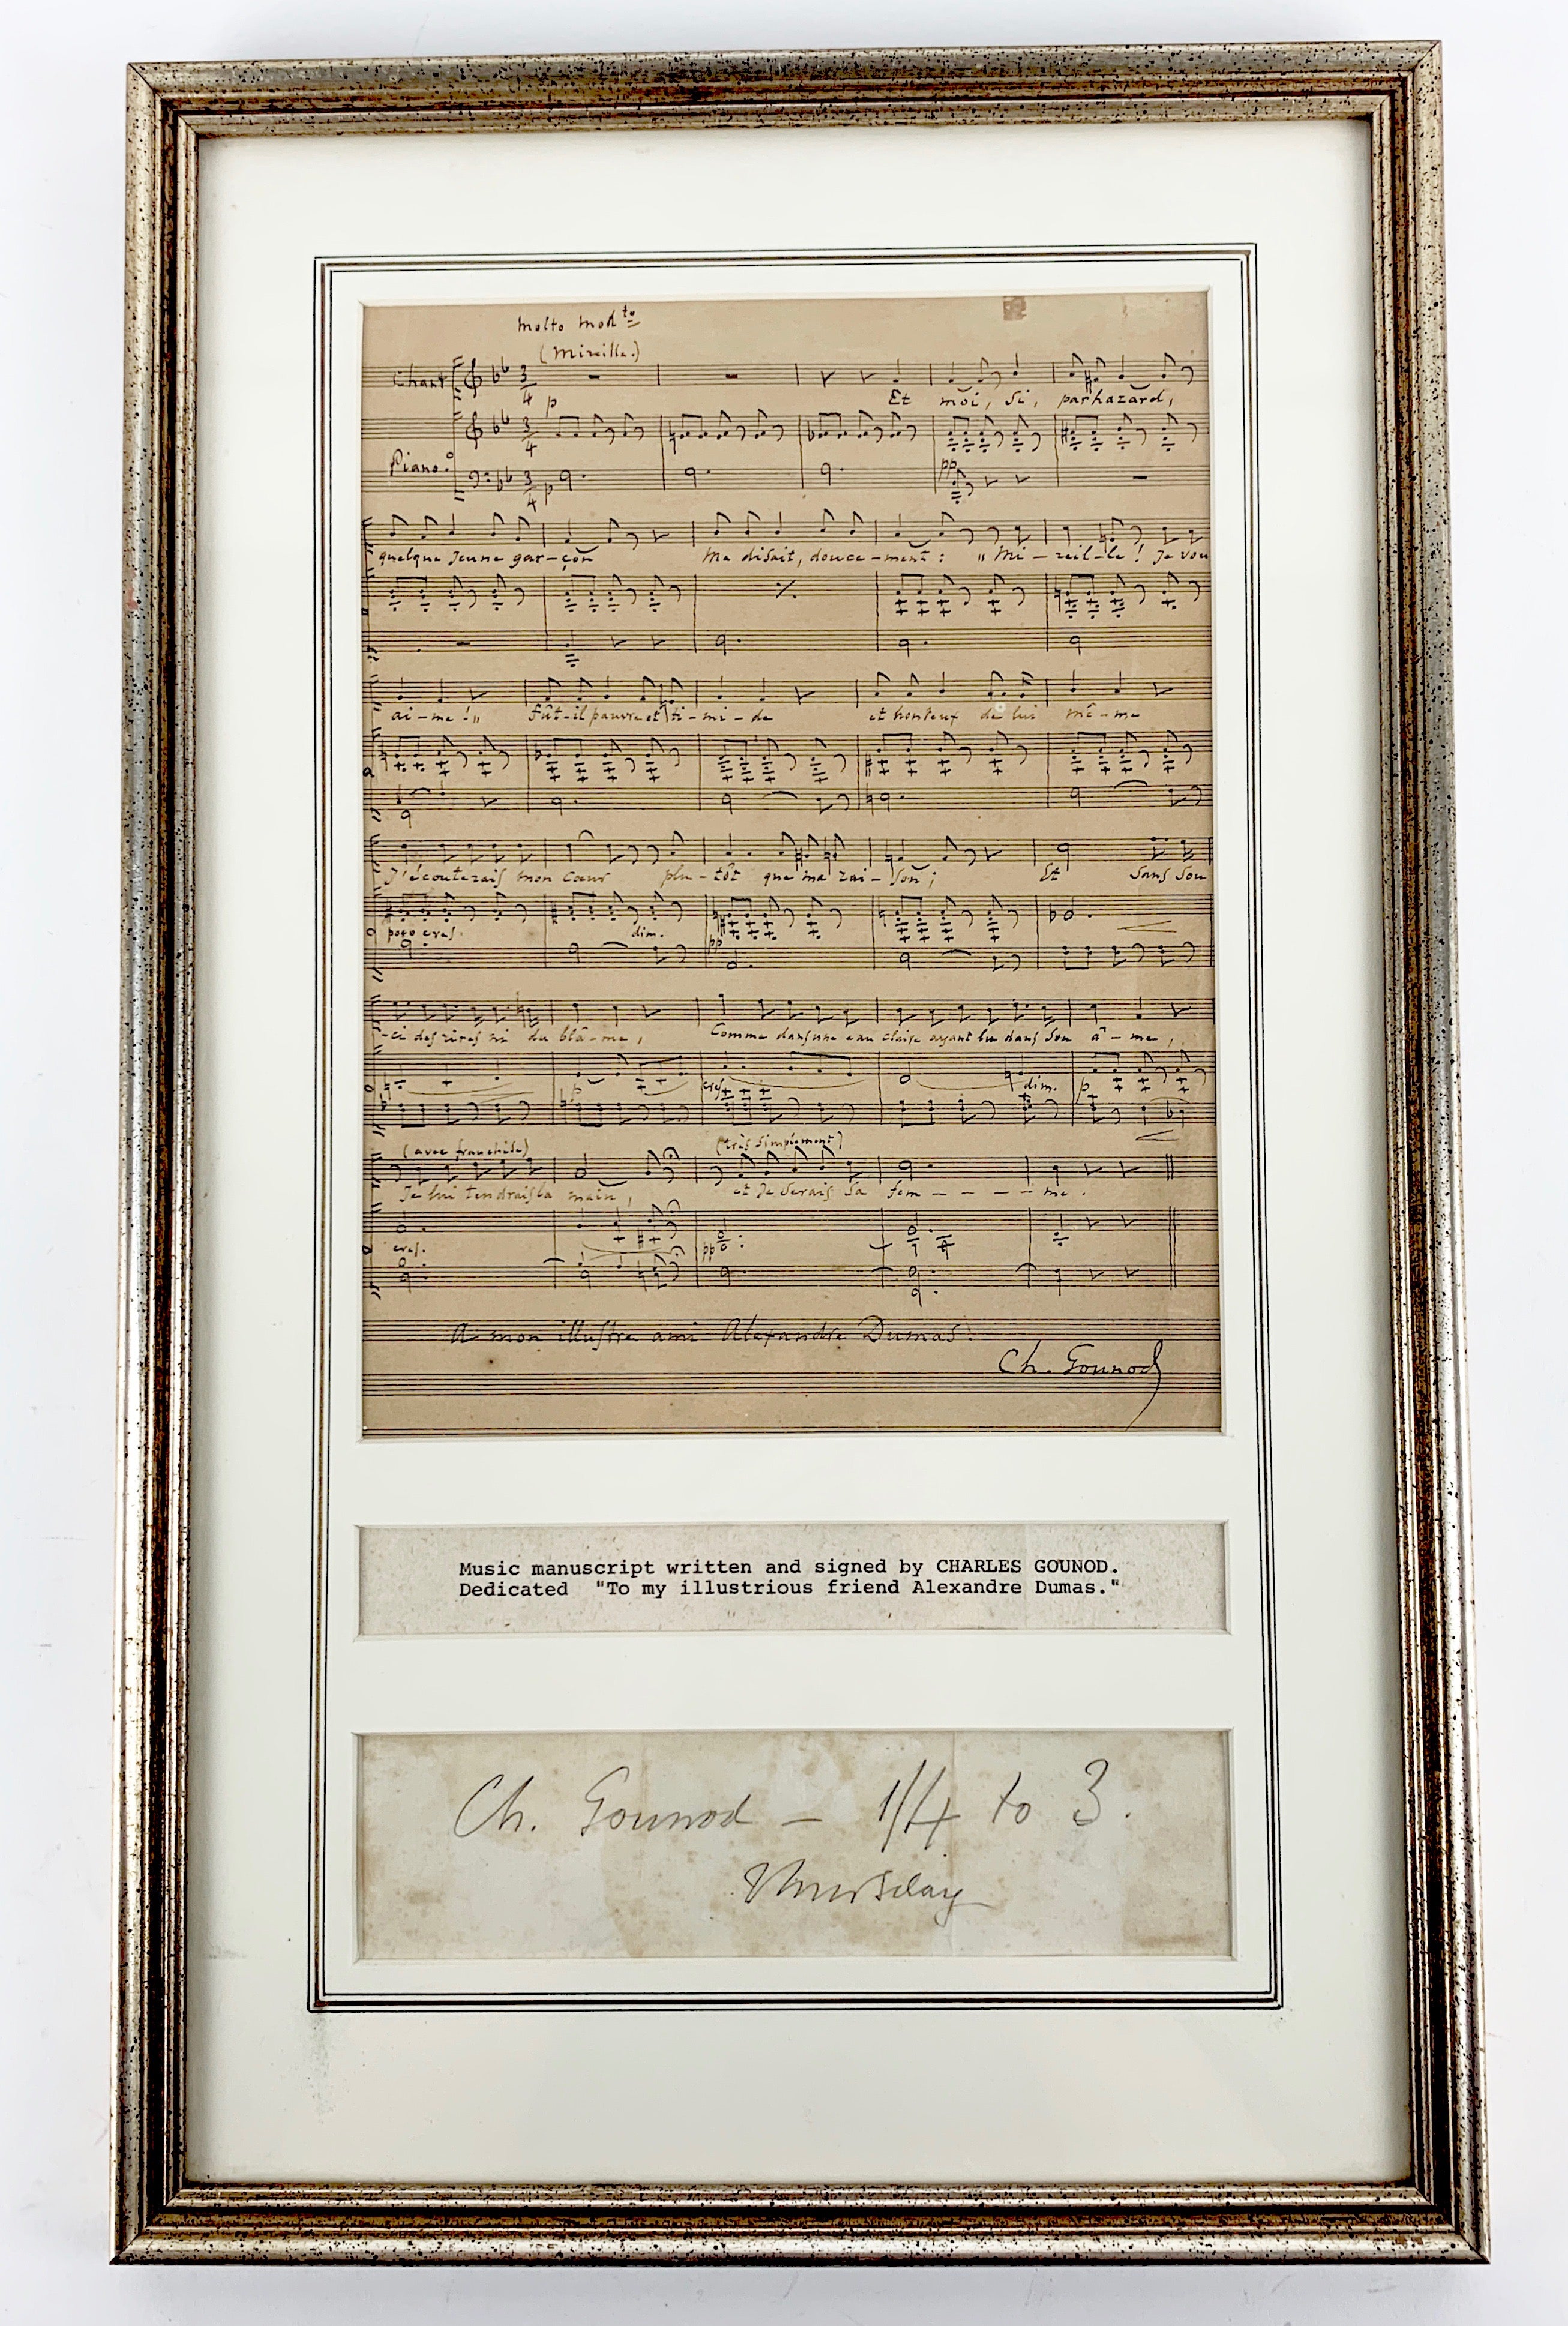 Molto Mod.to
(Mireille.)
Chant
p
Et moi, Si, par hazard,
Piano.
pp
p
quelque jeune gar-çon me disait, douce-ment: "Mi-reil-le! Je vou
ai-me!" fût-il pauvre et ti-mi-de et honteux de lui mê-me
J'écouterais mon Cœur plu-tôt que ma rai-son; Et Sans Sou
poco cres. dim.
pp
-ci des rires ni du blâ-me, Comme dans une eau claire ayant lu dans Son â-me,
p cres dim. p
(avec franchise) (très Simplement)
Je lui tendrais la main, et Je Serais Sa fem - - - - me.
cres. pp
A mon illustre ami Alexandre Dumas.
Ch. Gounod
Music manuscript written and signed by CHARLES GOUNOD.
Dedicated "To my illustrious friend Alexandre Dumas."
Ch. Gounod - 1/4 to 3.
Thursday